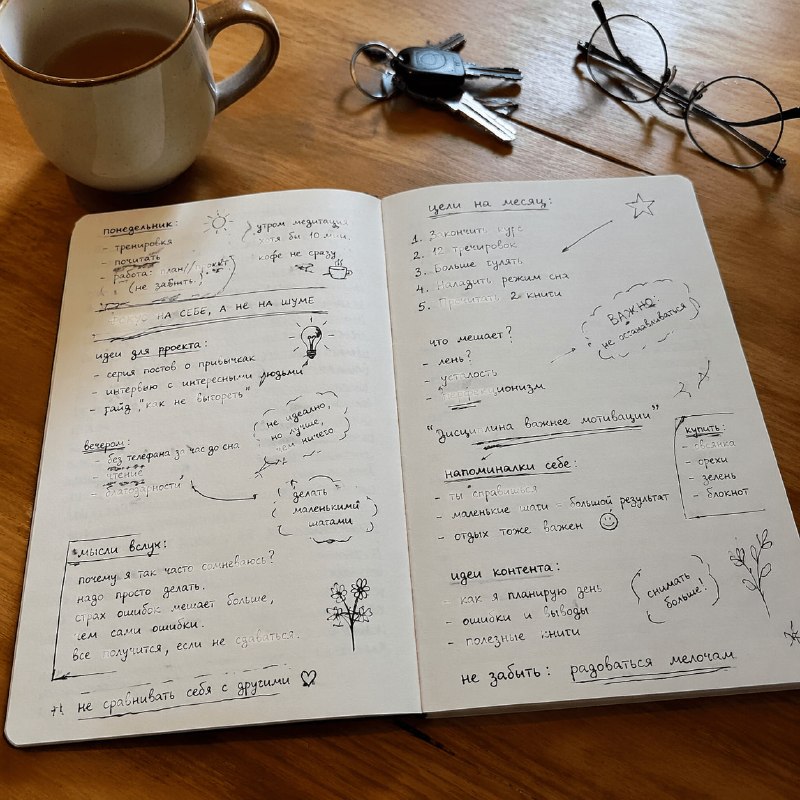 понедельник:
- тренировка
- почитать
- работа: план//проект
(не забыть!)
утром медитация
хотя бы 10 мин.
кофе не сразу
НА СЕБЕ, А НЕ НА ШУМЕ
идеи для рроекта:
- серия постов о привычках
- интервью с интересными людьми
- гайд "как не выгореть"
не идеально,
но лучше,
чем ничего
вечером:
- без телефана за час до сна
- чтение
- благодарности
делать
маленькими
шагами
мысли вслух:
почему я так часто сомневаюсь?
надо просто делать.
страх ошибок мешает больше,
чем сами ошибки.
все получится, если не сдаваться.
не сравнивать себя с другими ♡
цели на месяц:
1. Закончить курс
2. 12 тречировок
3. Больше гулять
4. Наладить режим сна
5. Прочитать 2 книги
ВАЖНО:
не останавливаться
что мешает?
- лень?
- усталость
- перфекционизм
"Дисциплина важнее мотивации"
купить:
- овсянка
- орехи
- зелень
- блокнот
напоминалки себе:
- ты справишься
- маленькие шаги = большой результат
- отдых тоже важен ☺
идеи контента:
- как я планирую день
- ошибки и выводы
- полезные книги
снимать
больше!
не забыть: радоваться мелочам